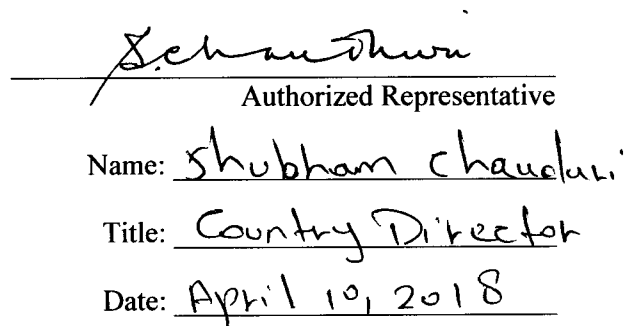 S. Chaudhuri
Authorized Representative
Name: Shubham Chauduri
Title: Country Director
Date: April 10, 2018